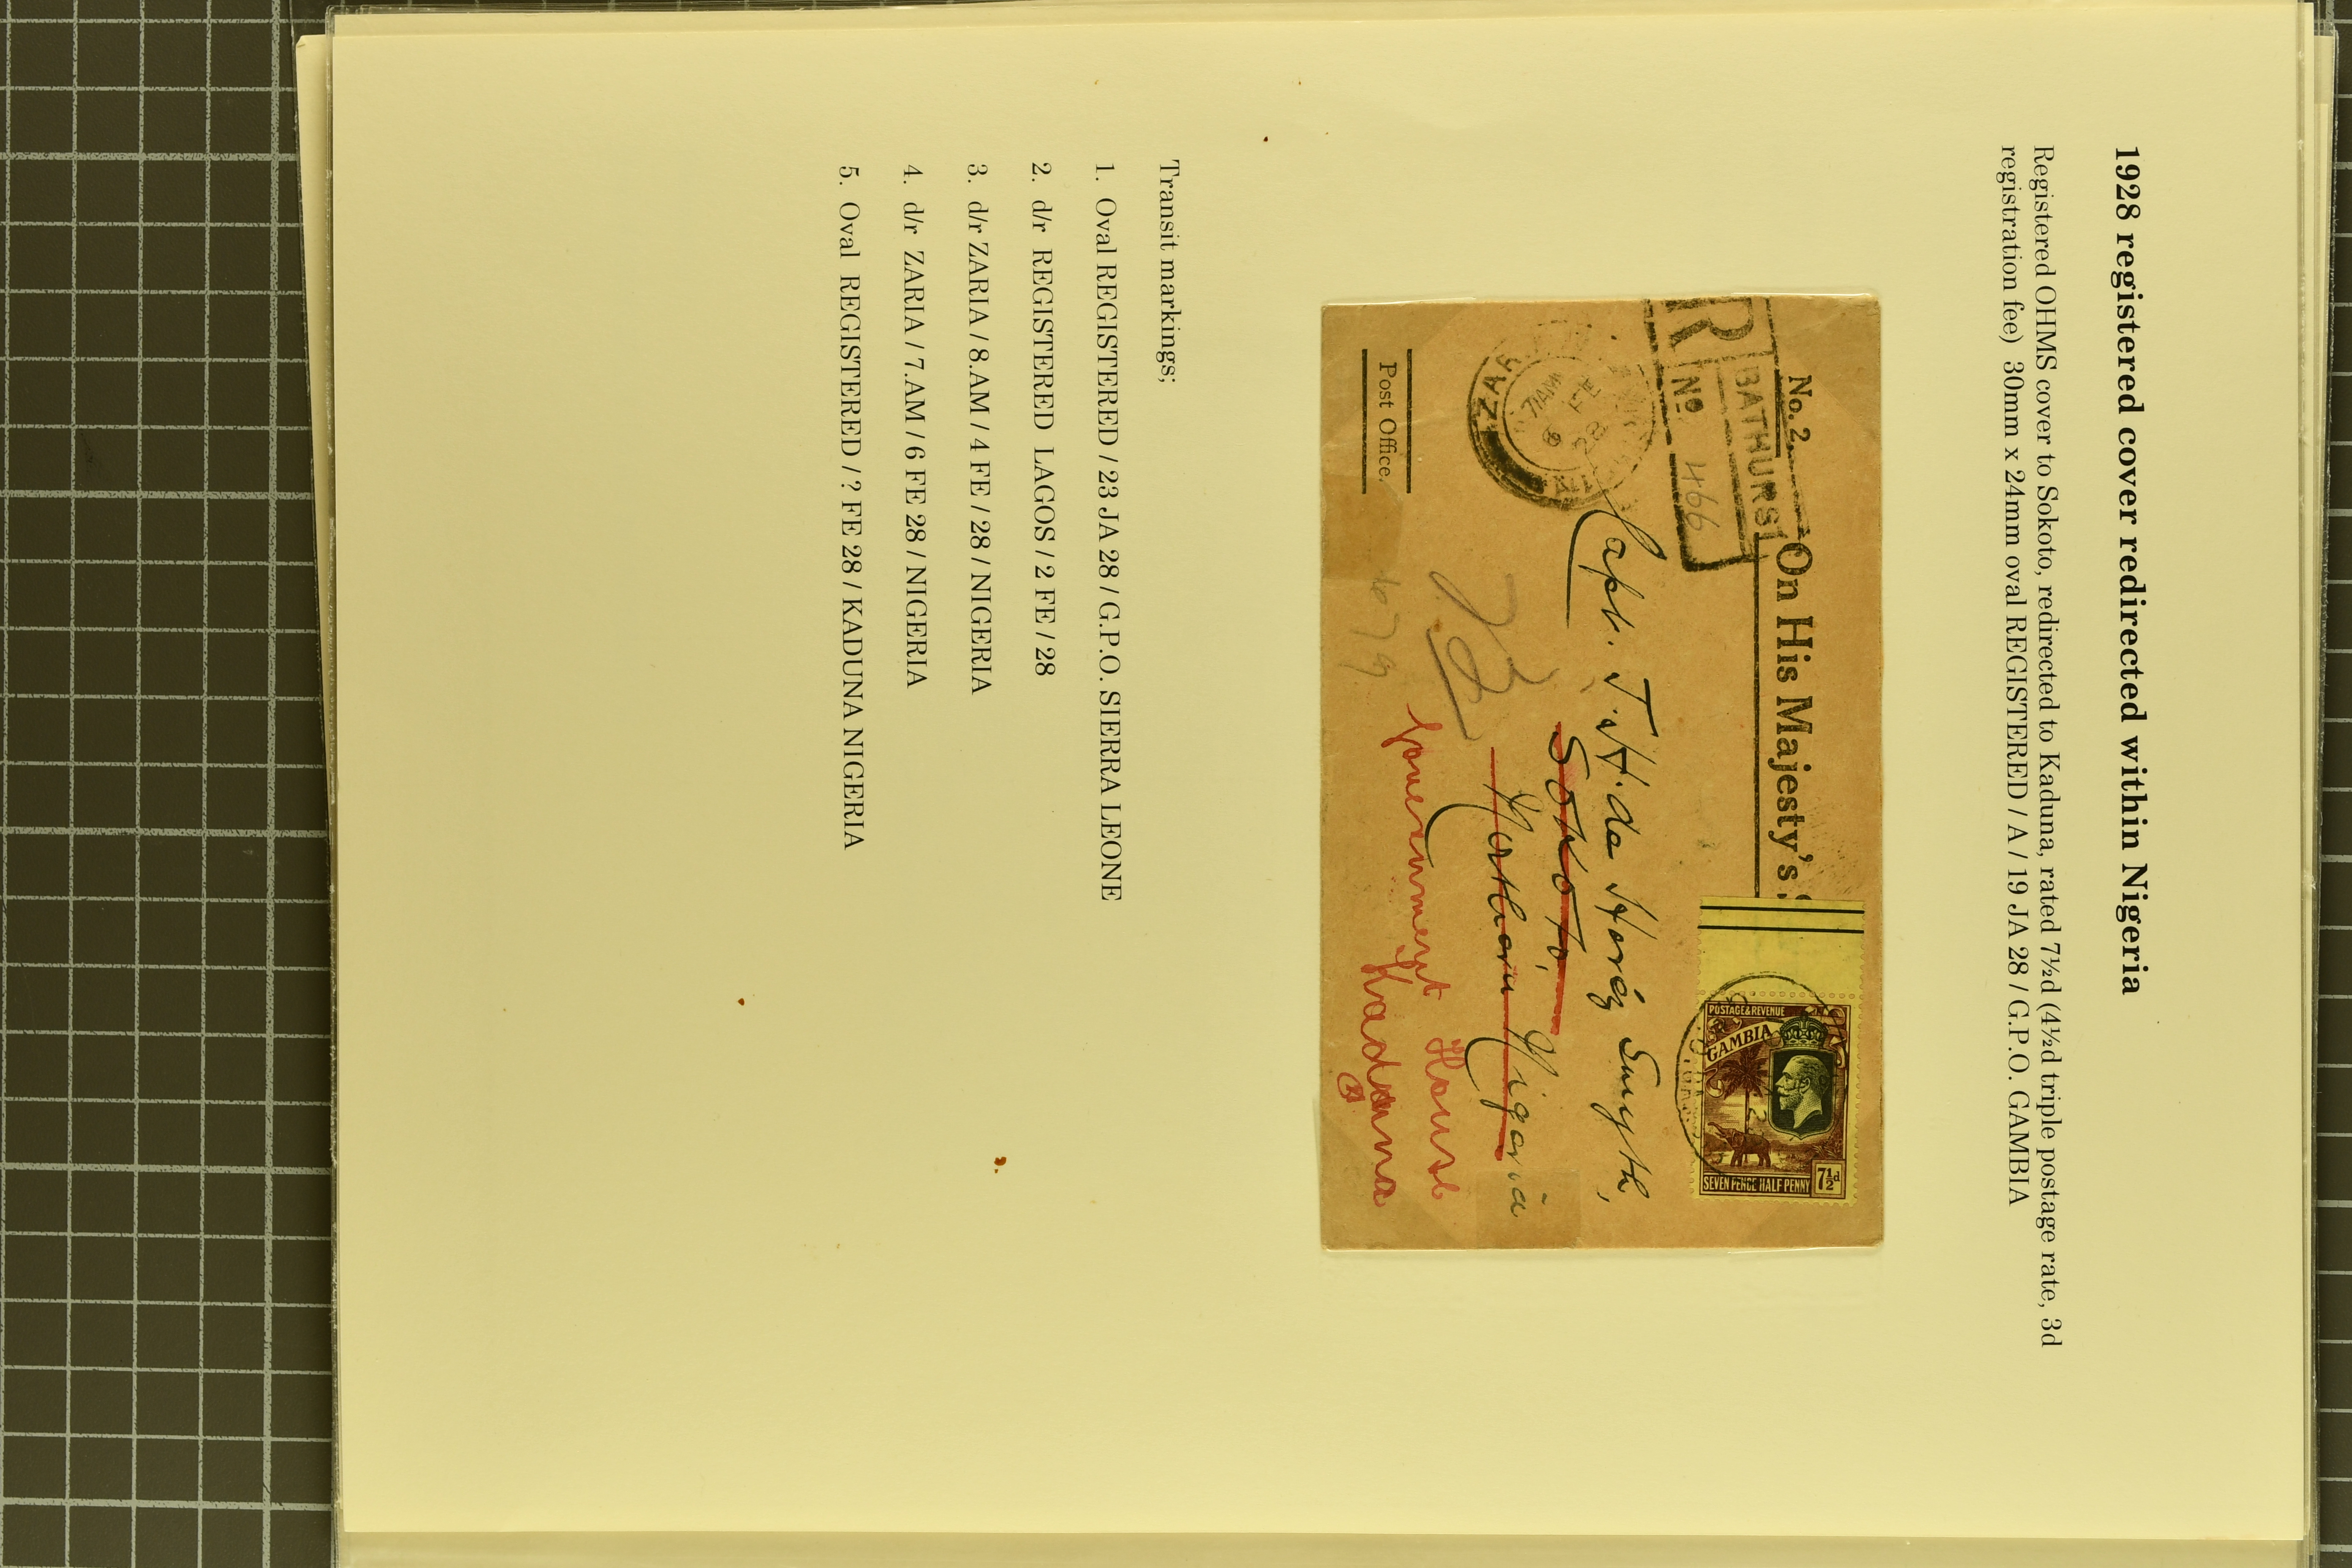 1928 registered cover redirected within Nigeria
Registered OHMS cover to Sokoto, redirected to Kaduna, rated 7½d (4½d triple postage rate, 3d
registration fee) 30mm x 24mm oval REGISTERED / A / 19 JA 28 / G.P.O. GAMBIA
No. 2.
On His Majesty's
R
BATHURST
No 466
POSTAGE & REVENUE
GAMBIA
SEVEN PENCE HALF PENNY
7½d
ZARIA
7 AM
6 FE
28
Capt. T. H. de Horéz Smyth,
Sokoto,
Northern Nigeria
Government House
Kaduna
Post Office.
Transit markings;
1. Oval REGISTERED / 23 JA 28 / G.P.O. SIERRA LEONE
2. d/r REGISTERED LAGOS / 2 FE / 28
3. d/r ZARIA / 8.AM / 4 FE / 28 / NIGERIA
4. d/r ZARIA / 7.AM / 6 FE 28 / NIGERIA
5. Oval REGISTERED / ? FE 28 / KADUNA NIGERIA